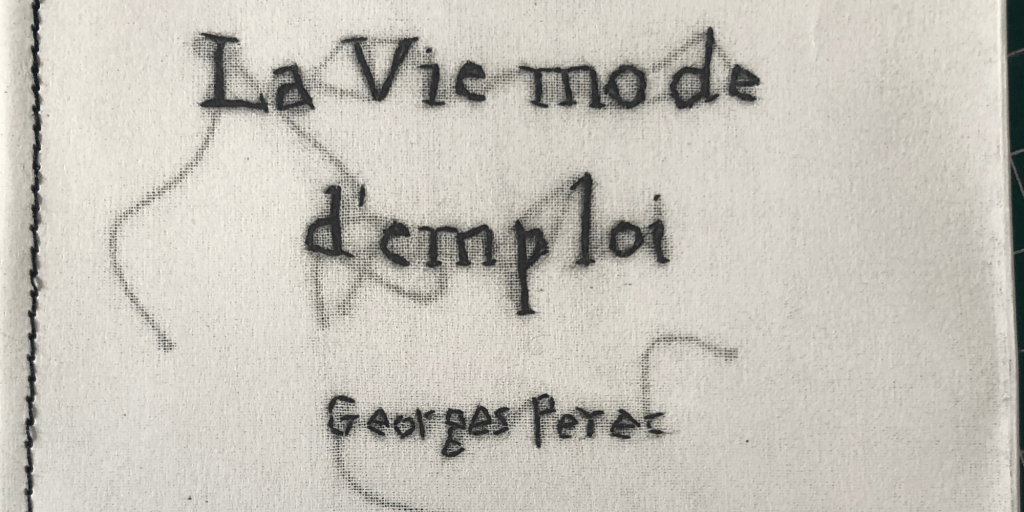 La Vie mode
d'emploi
Georges Perec